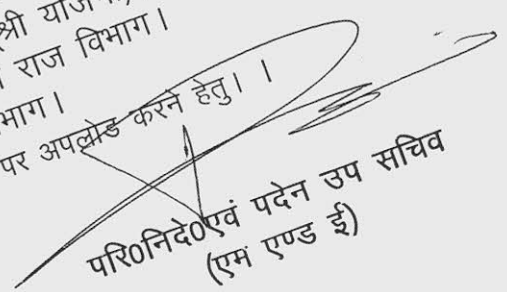 श्री
राज विभाग।
भाग।
पर अपलोड करने हेतु। ।
परि0निदे0एवं पदेन उप सचिव
(एम एण्ड ई)